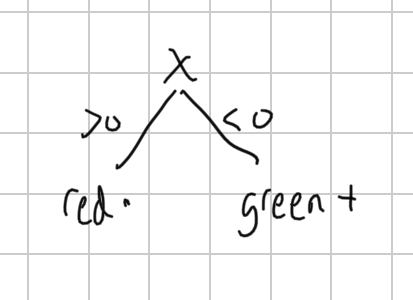 X
>0 <0
red · green +